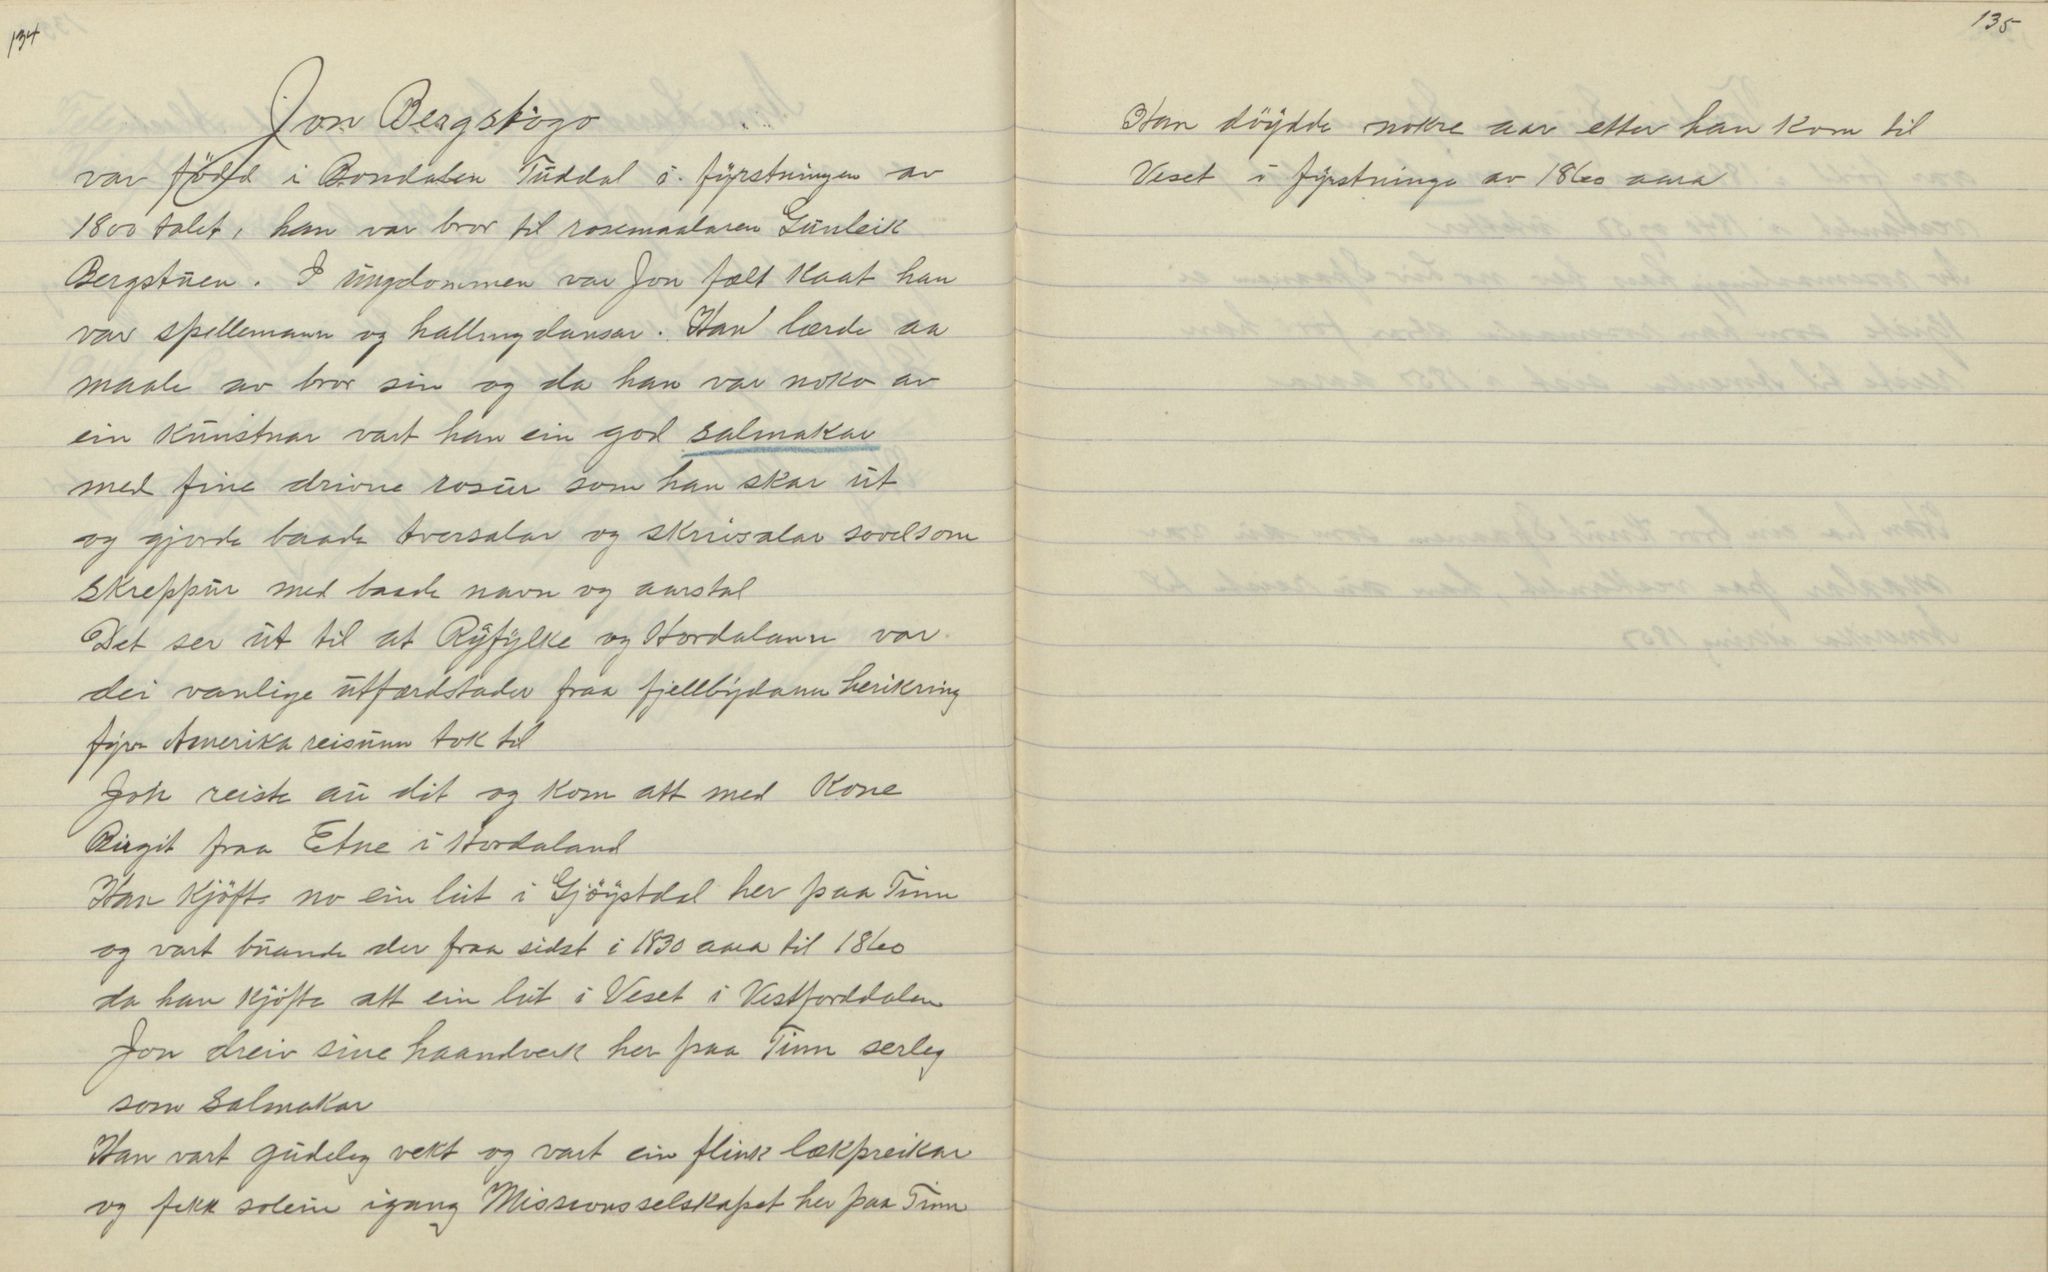 134
Jon Bergstögo
var född i Bondalen Tuddal i fyrstningen av
1800 talet, han var bror til rosemaalaren Gunleik
Bergstuen. I ungdommen var Jon fælt kaat han
var spellemann og hallingdansar. Han lærde aa
maale av bror sin og da han var noko av
ein kunstnar vart han ein god salmakar
med fine drivne rosur som han skar ut
og gjorde baade tversalar og skrivsalar sovelsom
skreppur med baade navn og aarstal
Det ser ut til at Ryfylke og Hordalann var
dei vanlige utfærdstader fraa fjellbydann herikring
fyrr Amerika reisunn tok til
Jon reiste au dit og kom att med Kone
Birgit fraa Etne i Hordaland
Han kjöfte no ein lut i Gjöystdal her paa Tinn
og vart buande der fraa sidst i 1830 aara til 1860
da han kjöfte att ein lut i Veset i Vestfjorddalen
Jon dreiv sine haandverk her paa Tinn serleg
som salmakar
Han vart gudeleg vekt og vart ein flink lækpreikar
og fekk soleie igang Missionsselskapet her paa Tinn
135
Han döydde nokre aar etter han kom til
Veset i fyrstninga av 1860 aara